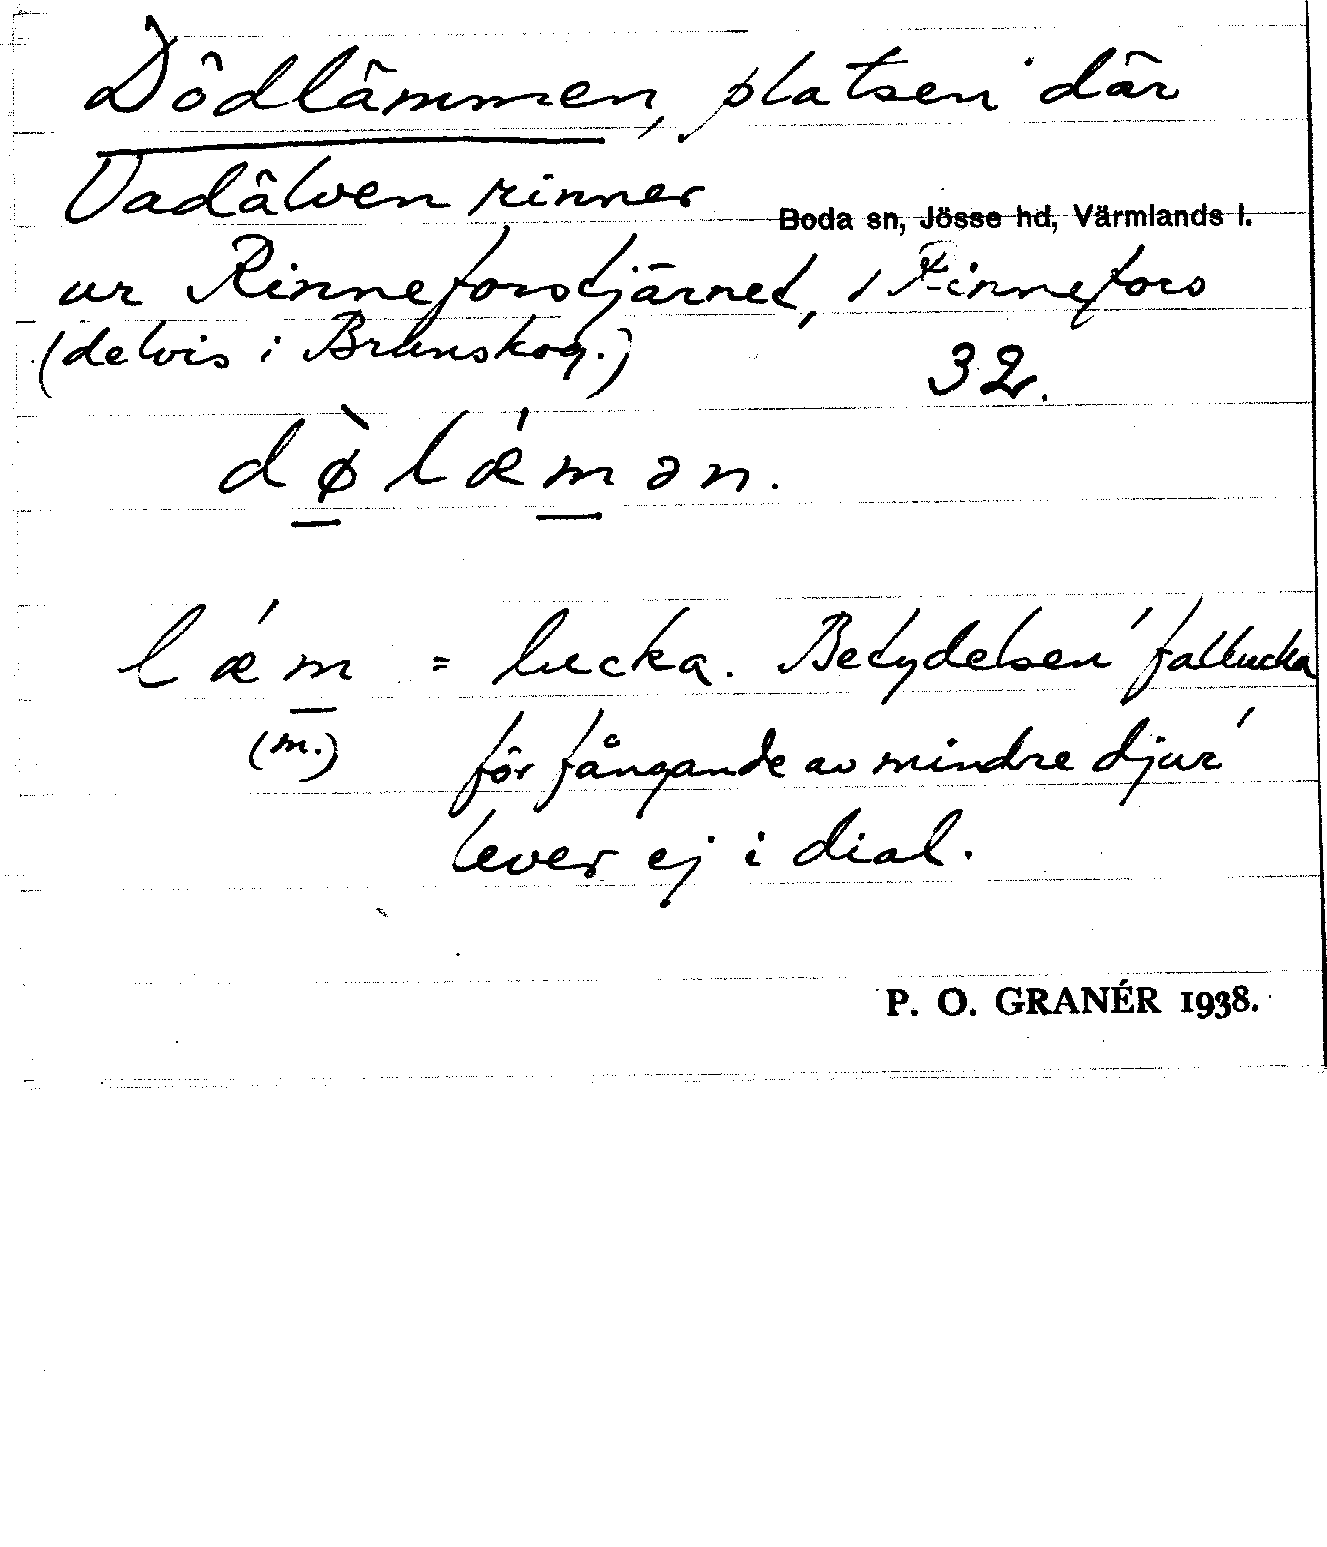 Dödlämmen, platsen där
Vadälven rinner
Boda sn, Jösse hd, Värmlands l.
ur Rinneforstjärnet, / Rinnefors
(delvis i Brunskog.)
32.
dø̀lǽmən.
lǽm = lucka. Betydelsen ' fallucka
(m.) för fångande av mindre djur'
lever ej i dial.
P. O. GRANÉR 1938.